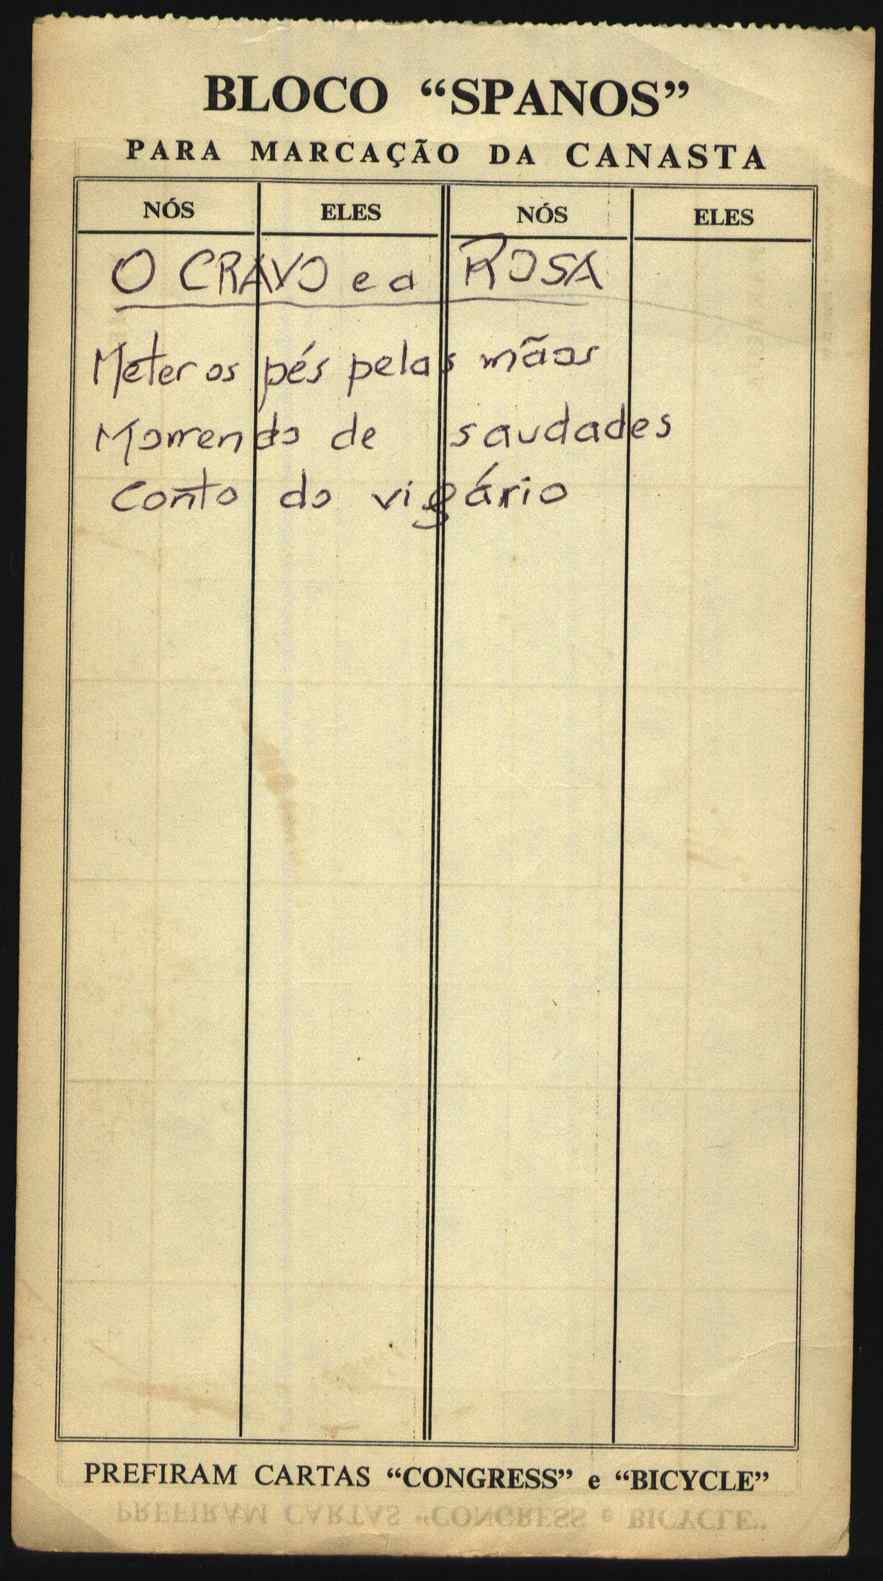 BLOCO “SPANOS”
PARA MARCAÇÃO DA CANASTA
NÓS ELES NÓS ELES
O CRAVO e a ROSA
Meter os pés pelas mãos
Morrendo de saudades
Conto do vigário
PREFIRAM CARTAS “CONGRESS” e “BICYCLE”
PREFIRAM CARTAS “CONGRESS e BICYCLE”